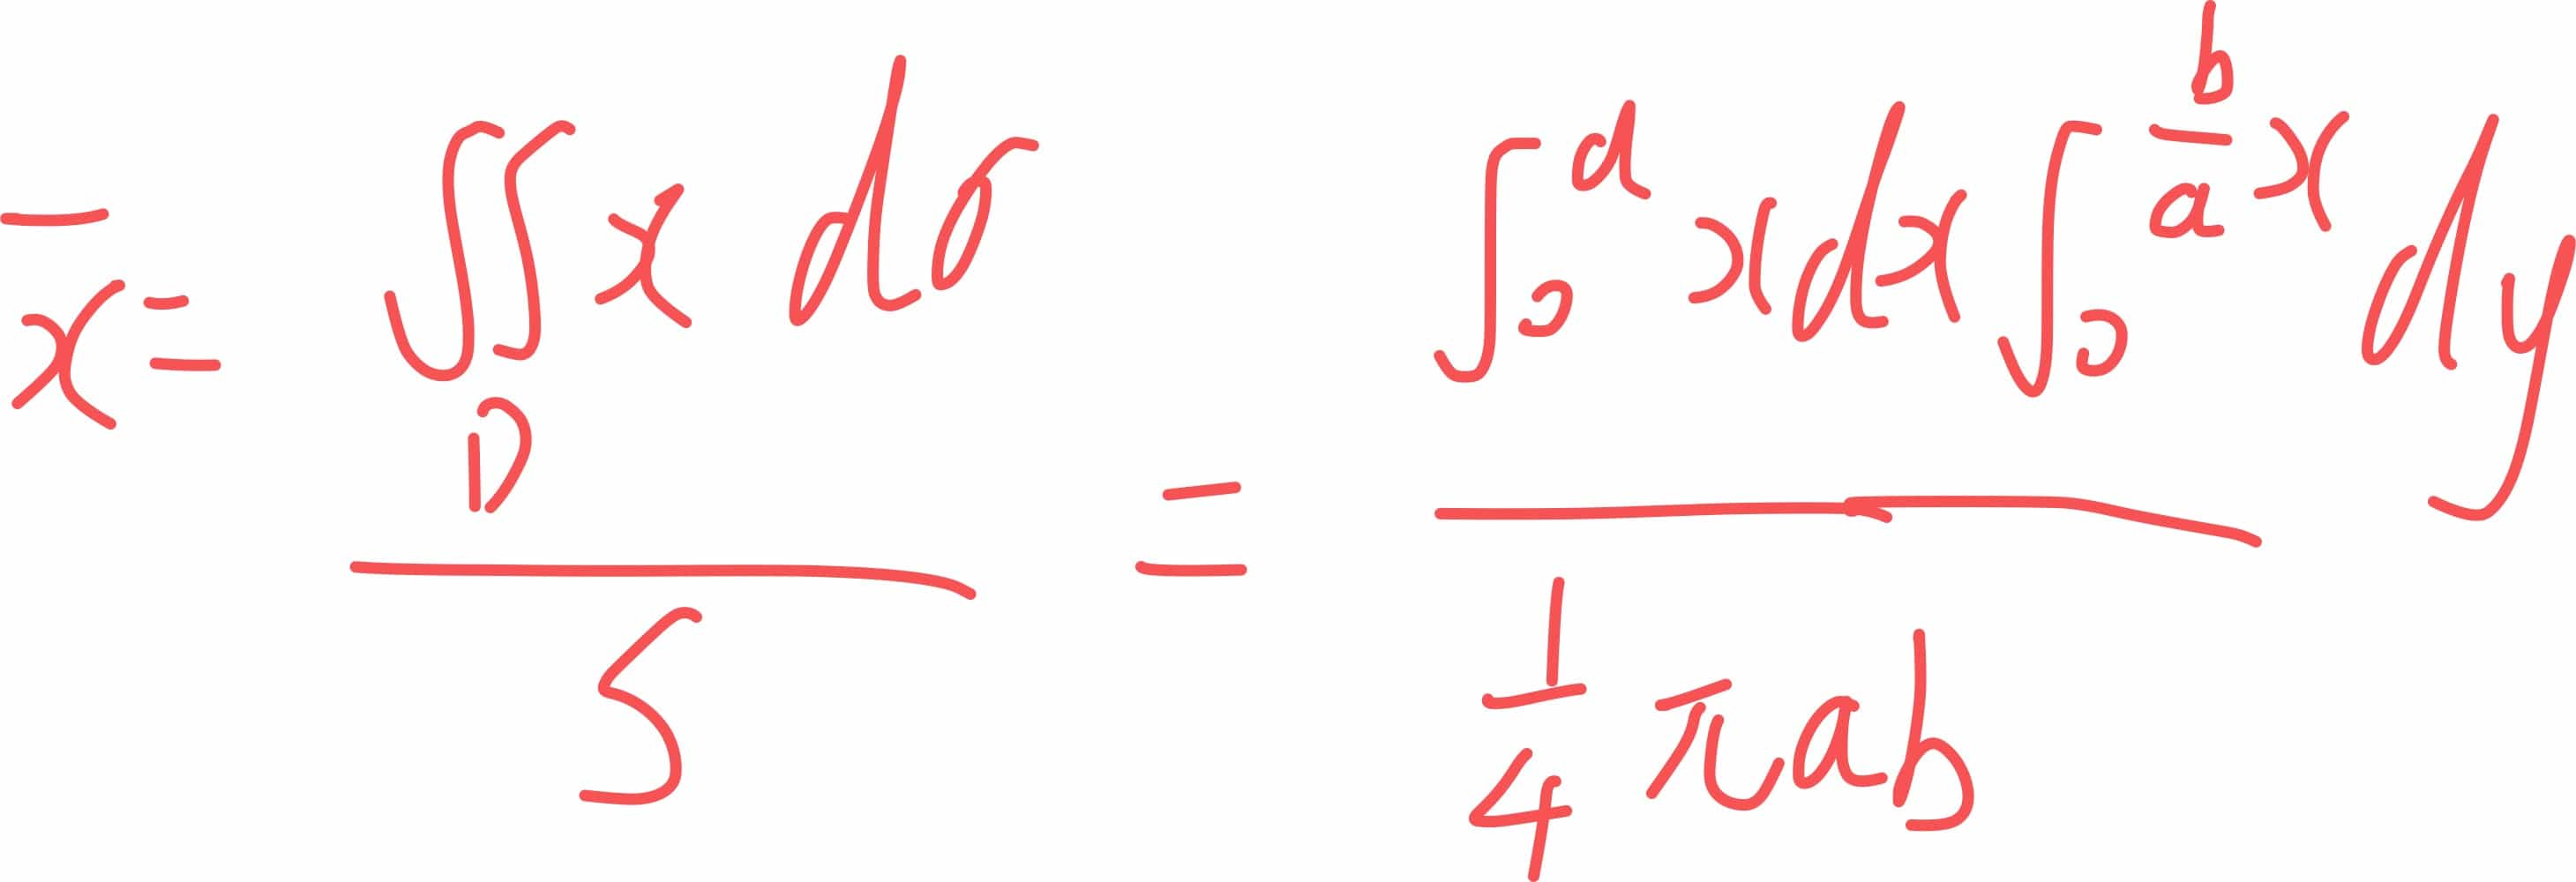 $\overline{x} = \frac{\iint_D x \, d\sigma}{S} = \frac{\int_0^a x dx \int_0^{\frac{b}{a}x} dy}{\frac{1}{4} \pi ab}$